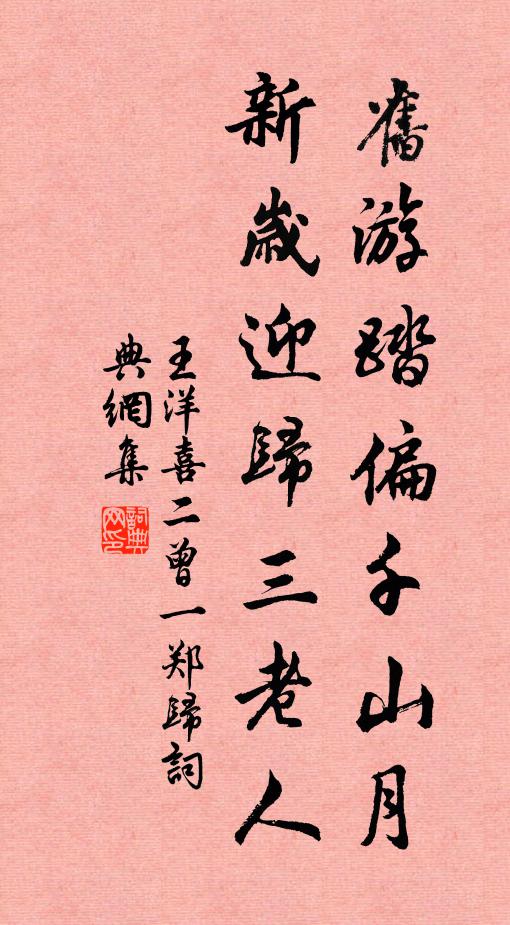 舊游踏偏千山月
新歲迎歸三老人
王洋喜二曾一郑歸詞
典網集
詞典网印